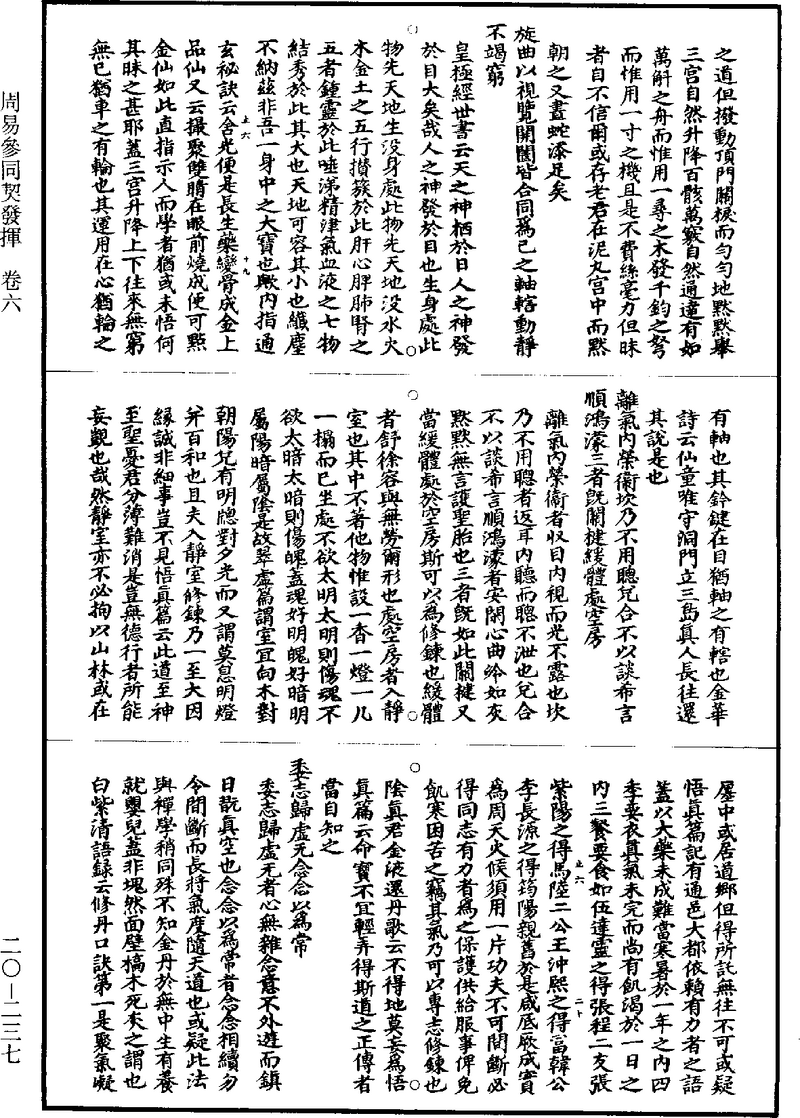 周易參同契發揮　卷六
二〇—二三七
之道但撥動頂門關棙而勻勻地默默舉
三宮自然升降百骸萬竅自然通達有如
萬斛之舟而惟用一尋之木發千鈞之弩
而惟用一寸之機且是不費絲毫力但昧
者自不信爾或存老君在泥丸宮中而黙
朝之又畫蛇添足矣
旋曲以視覽開闔皆合同爲已之軸轄動靜
不竭窮
皇極經世書云天之神栖於日人之神發
於目大矣哉人之神發於目也生身處此
物先天地生没身處此物先天地没水火
木金土之五行攢簇於此肝心脾肺腎之
五者鍾靈於此唾涕精津氣血液之七物
結秀於此其大也天地可容其小也纖塵
不納兹非吾一身中之大寶也歟内指通
玄秘訣云含光便是長生藥變骨成金上
品仙又云撮聚雙睛在眼前燒成便可點
金仙如此直指示人而學者猶或未悟何
其昧之甚耶蓋三宮升降上下往來無窮
無已猶車之有輪也其運用在心猶輪之
止六
十九
有軸也其鈐鍵在目猶軸之有轄也金華
詩云仙童唯守洞門立三島真人長往還
其說是也
離氣内榮衞坎乃不用聰兌合不以談希言
順鴻濛三者既關揵緩體處空房
離氣内榮衞者収目内視而光不露也坎
乃不用聰者返耳内聽而聰不泄也兌合
不以談希言順鴻濛者安閑心曲泠如灰
黙黙無言護聖胎也三者既如此關揵又
當緩體處於空房斯可以爲修鍊也緩體
者舒徐容與無勞爾形也處空房者入靜
室也其中不著他物惟設一香一燈一几
一榻而已坐處不欲太明太明則傷魂不
欲太暗太暗則傷魄蓋魂好明魄好暗明
屬陽暗屬陰是故翠虛篇謂室宜向木對
朝陽兌有明牕對夕光而又謂莫息明燈
并百和也且夫入靜室修鍊乃一至大因
緣誠非細事豈不見悟真篇云此道至神
至聖憂君分薄難消是豈無德行者所能
妄覬也哉然靜室亦不必拘以山林或在
㕓中或居道鄉但得所託無往不可或疑
悟真篇記有通邑大都依賴有力者之語
蓋以大藥未成難當寒暑於一年之内四
季要衣真氣未完而尚有飢渴於一日之
内三餐要食如伍達靈之得張程二友張
紫陽之得馬陸二公王沖熙之得富韓公
李長源之得筠陽親舊於是咸底厥成實
爲周天火候須用一片功夫不可間斷必
得同志有力者爲之保護供給服事俾免
飢寒困苦之竊其氣乃可以專志修鍊也
陰真君金液還丹歌云不得地莫妄爲悟
真篇云命寶不宜輕弄得斯道之正傳者
當自知之
委志歸虛无念念以爲常
委志歸虛无者心無雜念意不外遊而鎮
日翫真空也念念以爲常者念念相續勿
令間斷而長將氣度隨天道也或疑此法
與禪學稍同殊不知金丹於無中生有養
就嬰兒蓋非塊然面壁槁木死灰之謂也
白紫清語録云修丹口訣第一是聚氣凝
止六
二十